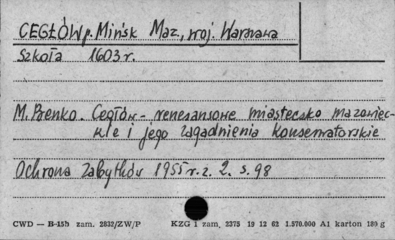 CEGŁÓW p. Mińsk Maz., woj. Warszawa
Szkoła 1603 r.
M. Benko. Cegłów - renesansowe miasteczko mazowiec-
kie i jego zagadnienia konserwatorskie
Ochrona Zabytków 1955 r. z. 2. s. 98
CWD — B-15b zam. 2832/ZW/P KZG 1 zam. 3375 19 12 62 1.570.000 A1 karton 180 g